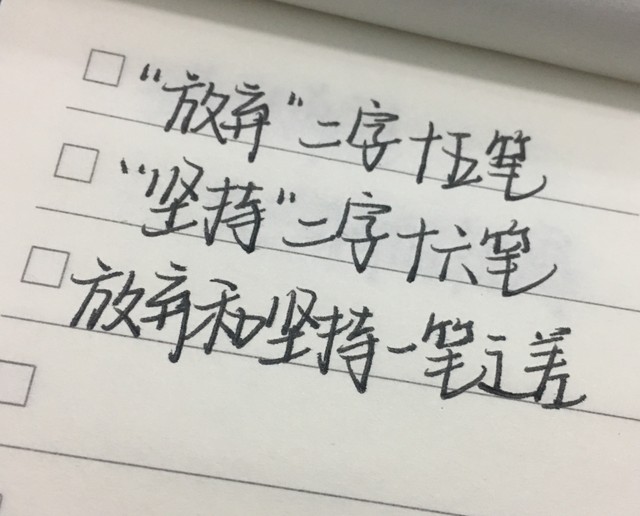 “放弃”二字十五笔
“坚持”二字十六笔
放弃和坚持一笔之差